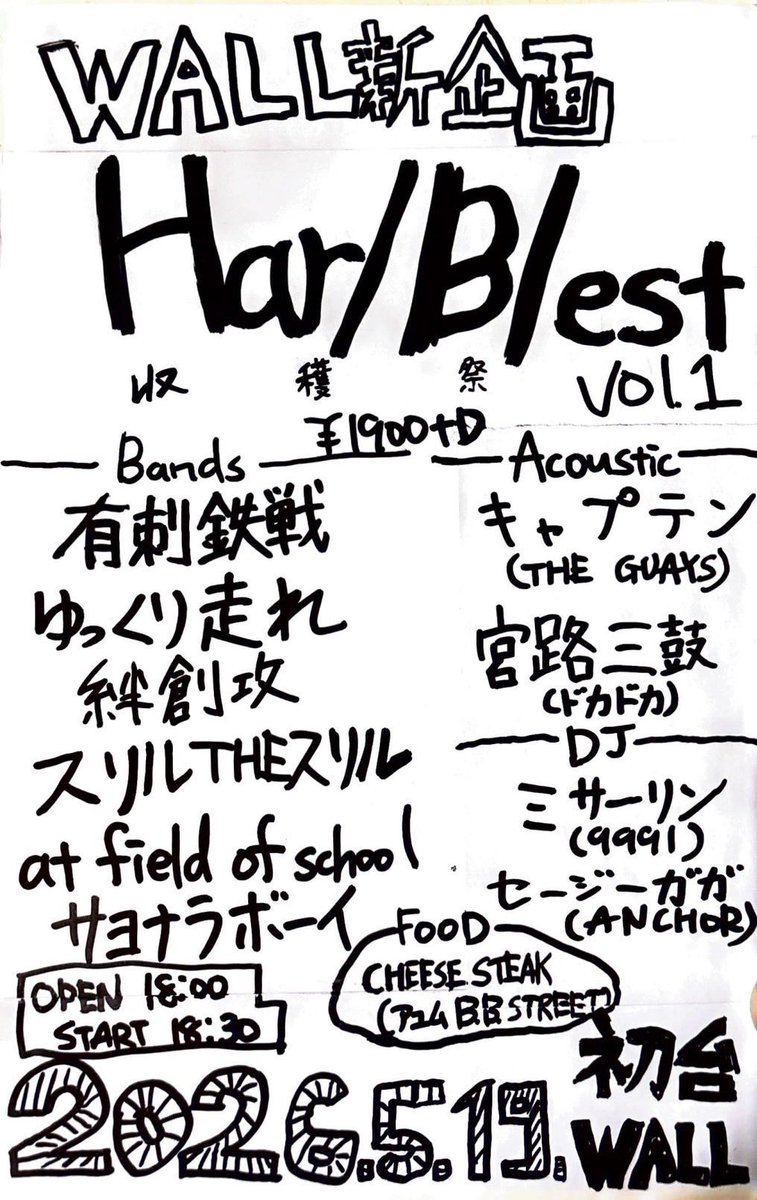 WALL新企画
Har/B/est
収穫祭
vol.1
¥1900+D
Bands
有刺鉄戦
ゆっくり走れ
絆創攻
スリルTHEスリル
at field of school
サヨナラボーイ
Acoustic
キャプテン
(THE GUAYS)
宮路三鼓
(ドカドカ)
DJ
ミサーリン
(9991)
セージーガガ
(ANCHOR)
FOOD
CHEESE STEAK
(アユム B.B.STREET)
OPEN 18:00
START 18:30
2026.5.19.
初台
WALL